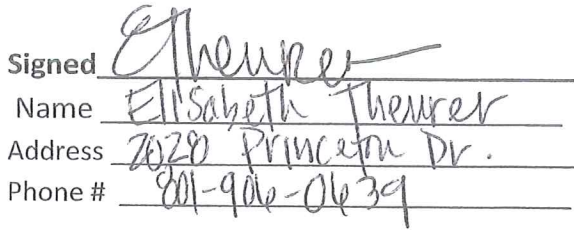 Signed ETheurer
Name Elisabeth Theurer
Address 2020 Princeton Dr.
Phone # 801-906-0639